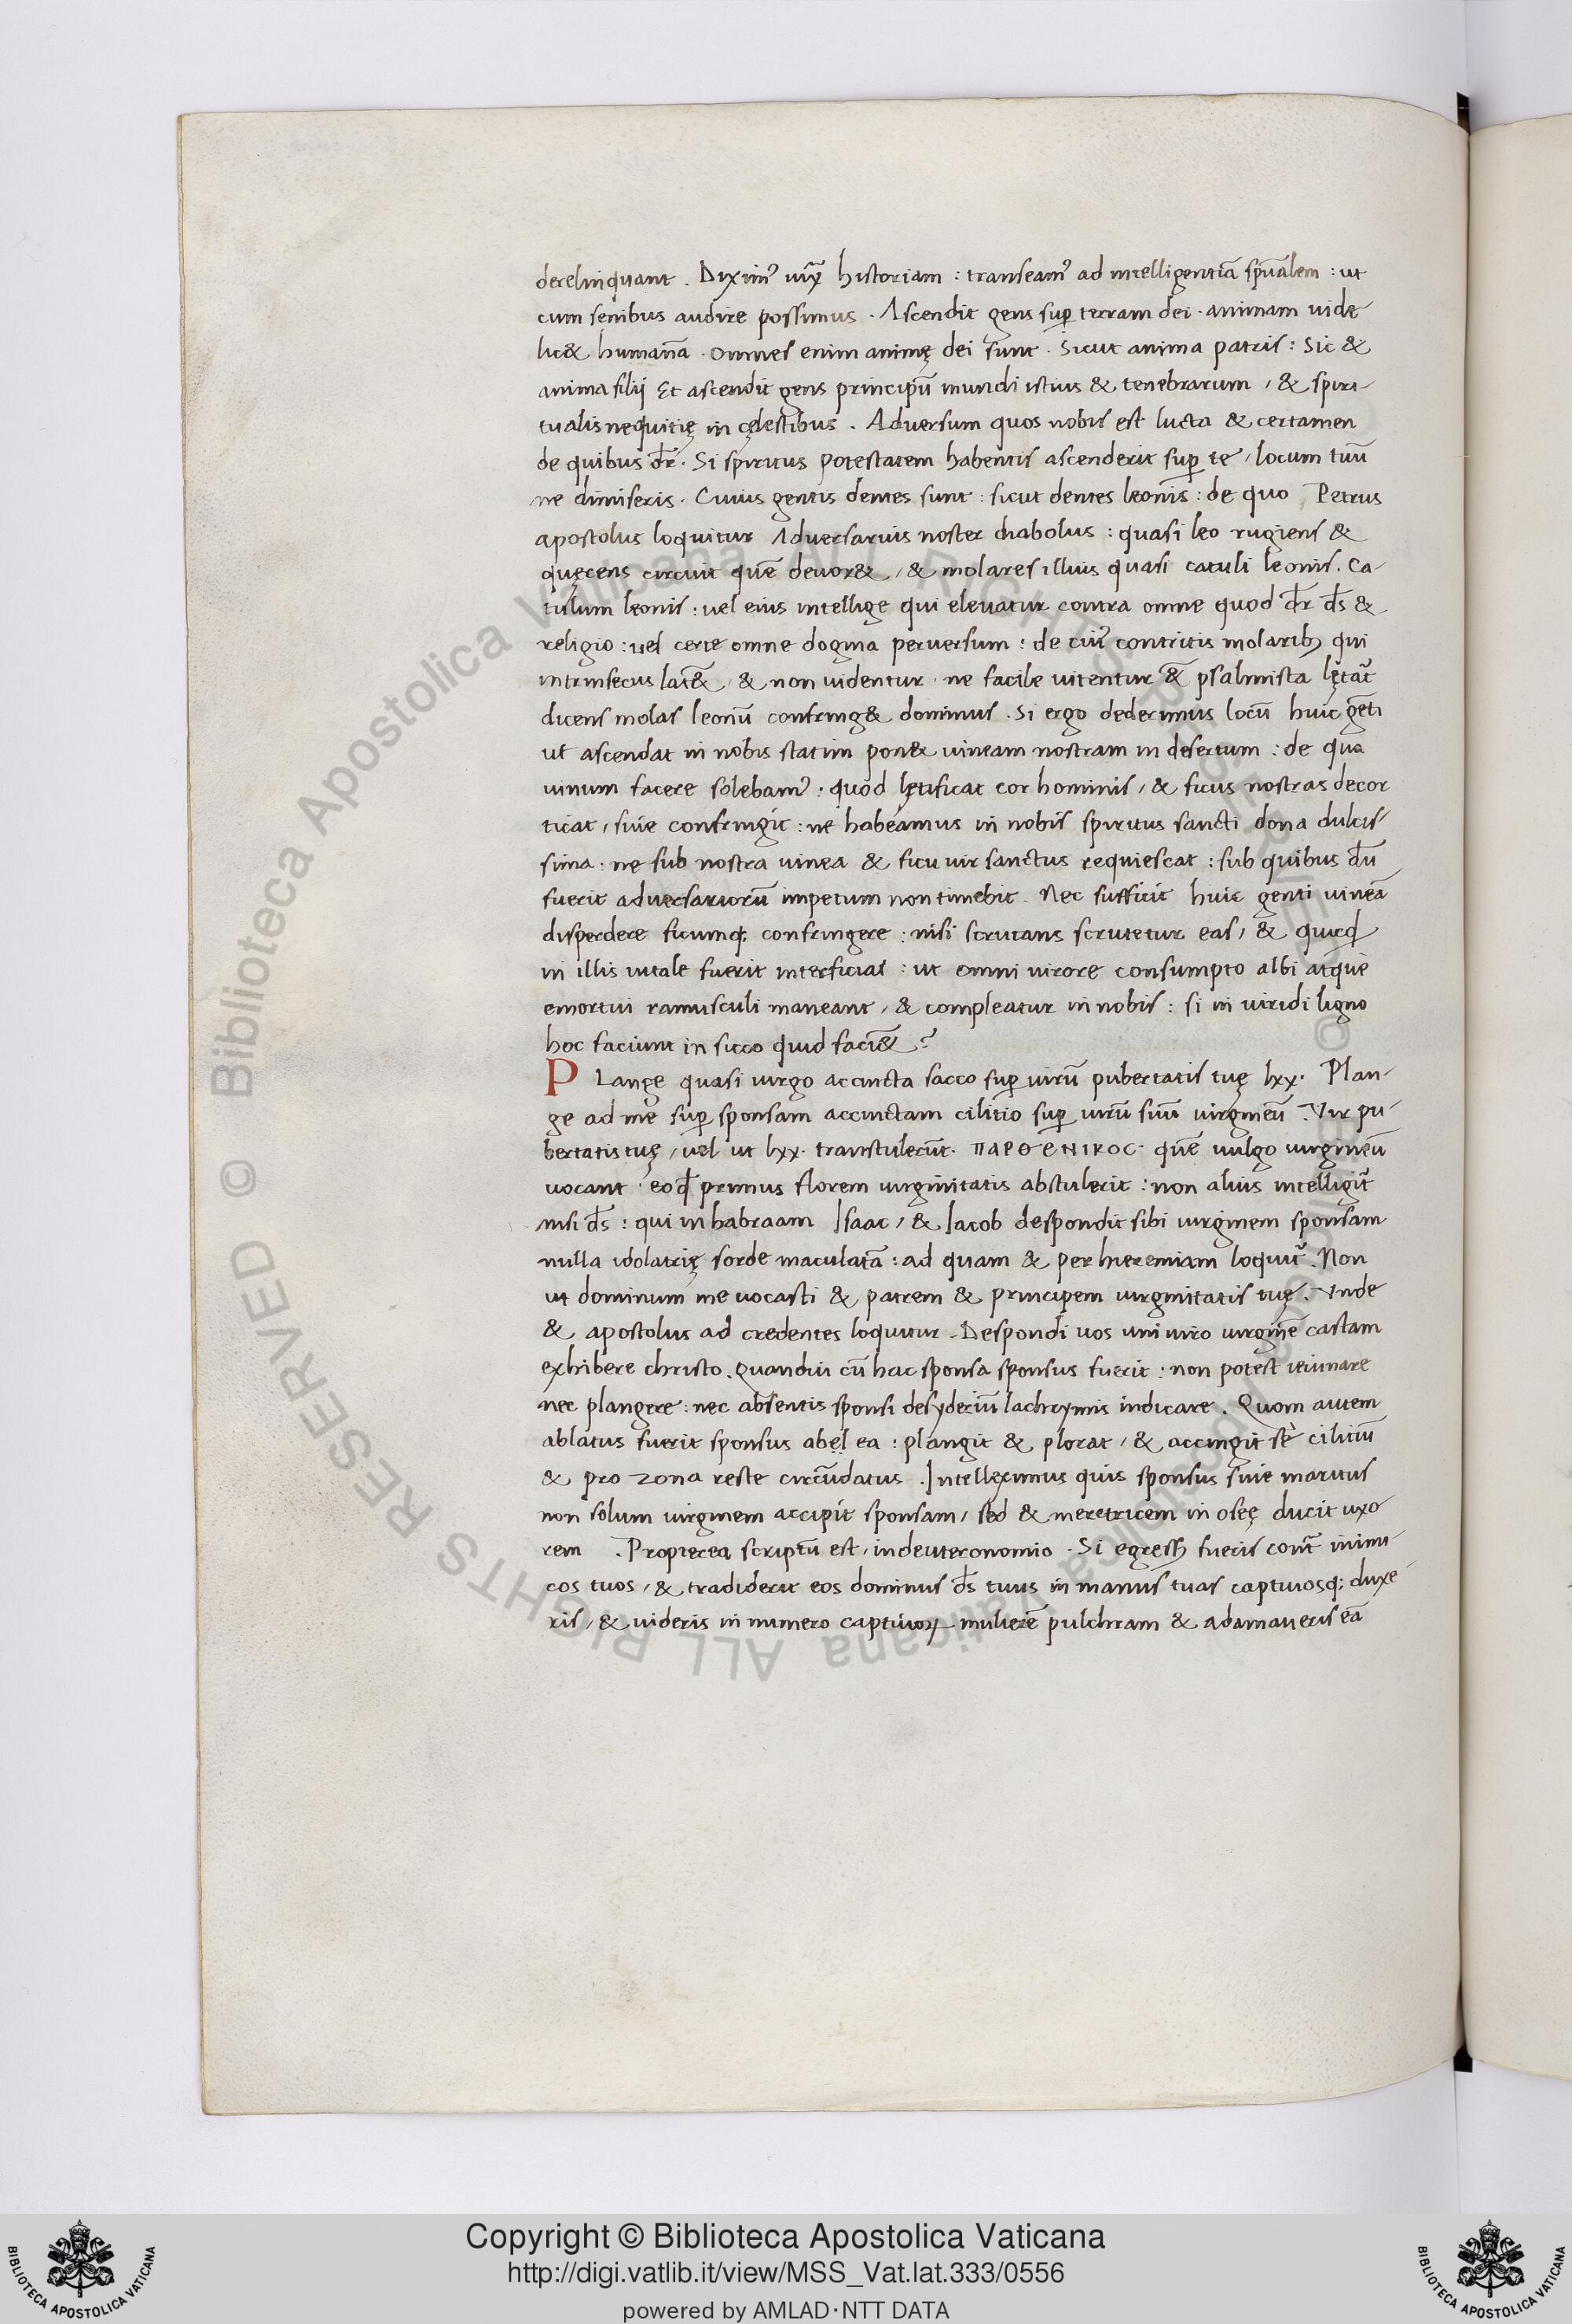 derelinquant . Diximꝰ iuxͣ historiam : transeamꝰ ad intelligentiā spūalem : ut
cum senibus audire possimus . Ascendit gens suꝑ terram dei . animam uidę
lic& humanā . omnes enim animę dei sunt . Sicut anima patris : Sic &
anima filij Et ascendit gens principū mundi istius & tenebrarum / & spiri-
tualis nequitię in cęlestibus . Adversum quos nobis est lucta & certamen
de quibus dr̄ . Si spiritus potestatem habentis ascenderit suꝑ te / locum tuū
ne dimiseris . Cuius gentis dentes sunt : sicut dentes leonis : de quo Petrus
apostolus loquitur Adversarius noster diabolus : quasi leo rugiens &
quęrens circuit quē deuor& / & molares illius quasi catuli leonis . Ca-
tulum leonis : uel eius intellige qui eleuatur contra omne quod dr̄ ds̄ &
religio : uel certe omne dogma perversum : de cuiꝰ contritis molaribꝫ qui
intrinsecus lat&̄ / & non uidentur . ne facile uitentur &̄ psalmista lętat᷑
dicens molas leonū confring& dominus . Si ergo dederimus locū huic gēti
ut ascendat in nobis statim pon& uineam nostram in desertum : de qua
uinum facere solebamꝰ : quod lętificat cor hominis / & ficus nostras decor
ticat / siue confringit : ne habeamus in nobis spiritus sancti dona dulcis-
sima . ne sub nostra uinea & ficu uir sanctus requiescat : sub quibus dū
fuerit adversariorū impetum non timebit . Nec sufficit huic genti uineā
disperdere ficumq; confringere : nisi scrutans scrutetur eas / & quicꝗ
in illis uitale fuerit interficiat : ut omni uirore consumpto albi atque
emortui ramusculi maneant / & compleatur in nobis : si in uiridi ligno
hoc faciunt in sicco quid faci&̄ ?
P Lange quasi uirgo accincta sacco suꝑ uirū pubertatis tuę lxx . Plan-
ge ad me suꝑ sponsam accinctam cilitio suꝑ uirū suū uirgineū . Vir pu-
bertatis tuę / uel ut lxx . transtulerūt . ΠΑΡΘΕΝΙΚΟC . quē uulgo uirgineū
uocant . eo ꝗ primus florem uirginitatis abstulerit : non alius intelligit᷑
nisi ds̄ : qui in habraam Isaac / & Iacob despondit sibi uirginem sponsam
nulla idolatrię sorde maculatā : ad quam & per hieremiam loquit᷑ . Non
ut dominum me uocasti & patrem & principem uirginitatis tuę . Vnde
& apostolus ad credentes loquitur . Despondi uos uni uiro uirginē castam
exhibere christo . Quandiu cū hac sponsa sponsus fuerit : non potest ieiunare
nec plangere : nec absentis sponsi desyderiū lachrymis indicare . Quom autem
ablatus fuerit sponsus abel ea : plangit & plorat / & accingit se cilitiū
& pro zona reste circūdatus . Intelleximus quis sponsus siue maritus
non solum uirginem accipit sponsam / sed & meretricem in oseę ducit uxo-
rem . Propterea scriptū est / in deuteronomio . Si egressꝰ fueris cont᷑ inimi-
cos tuos / & tradiderit eos dominus ds̄ tuus in manus tuas captiuosq; duxe-
ris / & uideris in numero captiuoꝝ mulierē pulchram & adamaueris eā
Copyright © Biblioteca Apostolica Vaticana
http://digi.vatlib.it/view/MSS_Vat.lat.333/0556
powered by AMLAD·NTT DATA
BIBLIOTECA APOSTOLICA VATICANA
BIBLIOTECA APOSTOLICA VATICANA
© Biblioteca Apostolica Vaticana ALL RIGHTS RESERVED